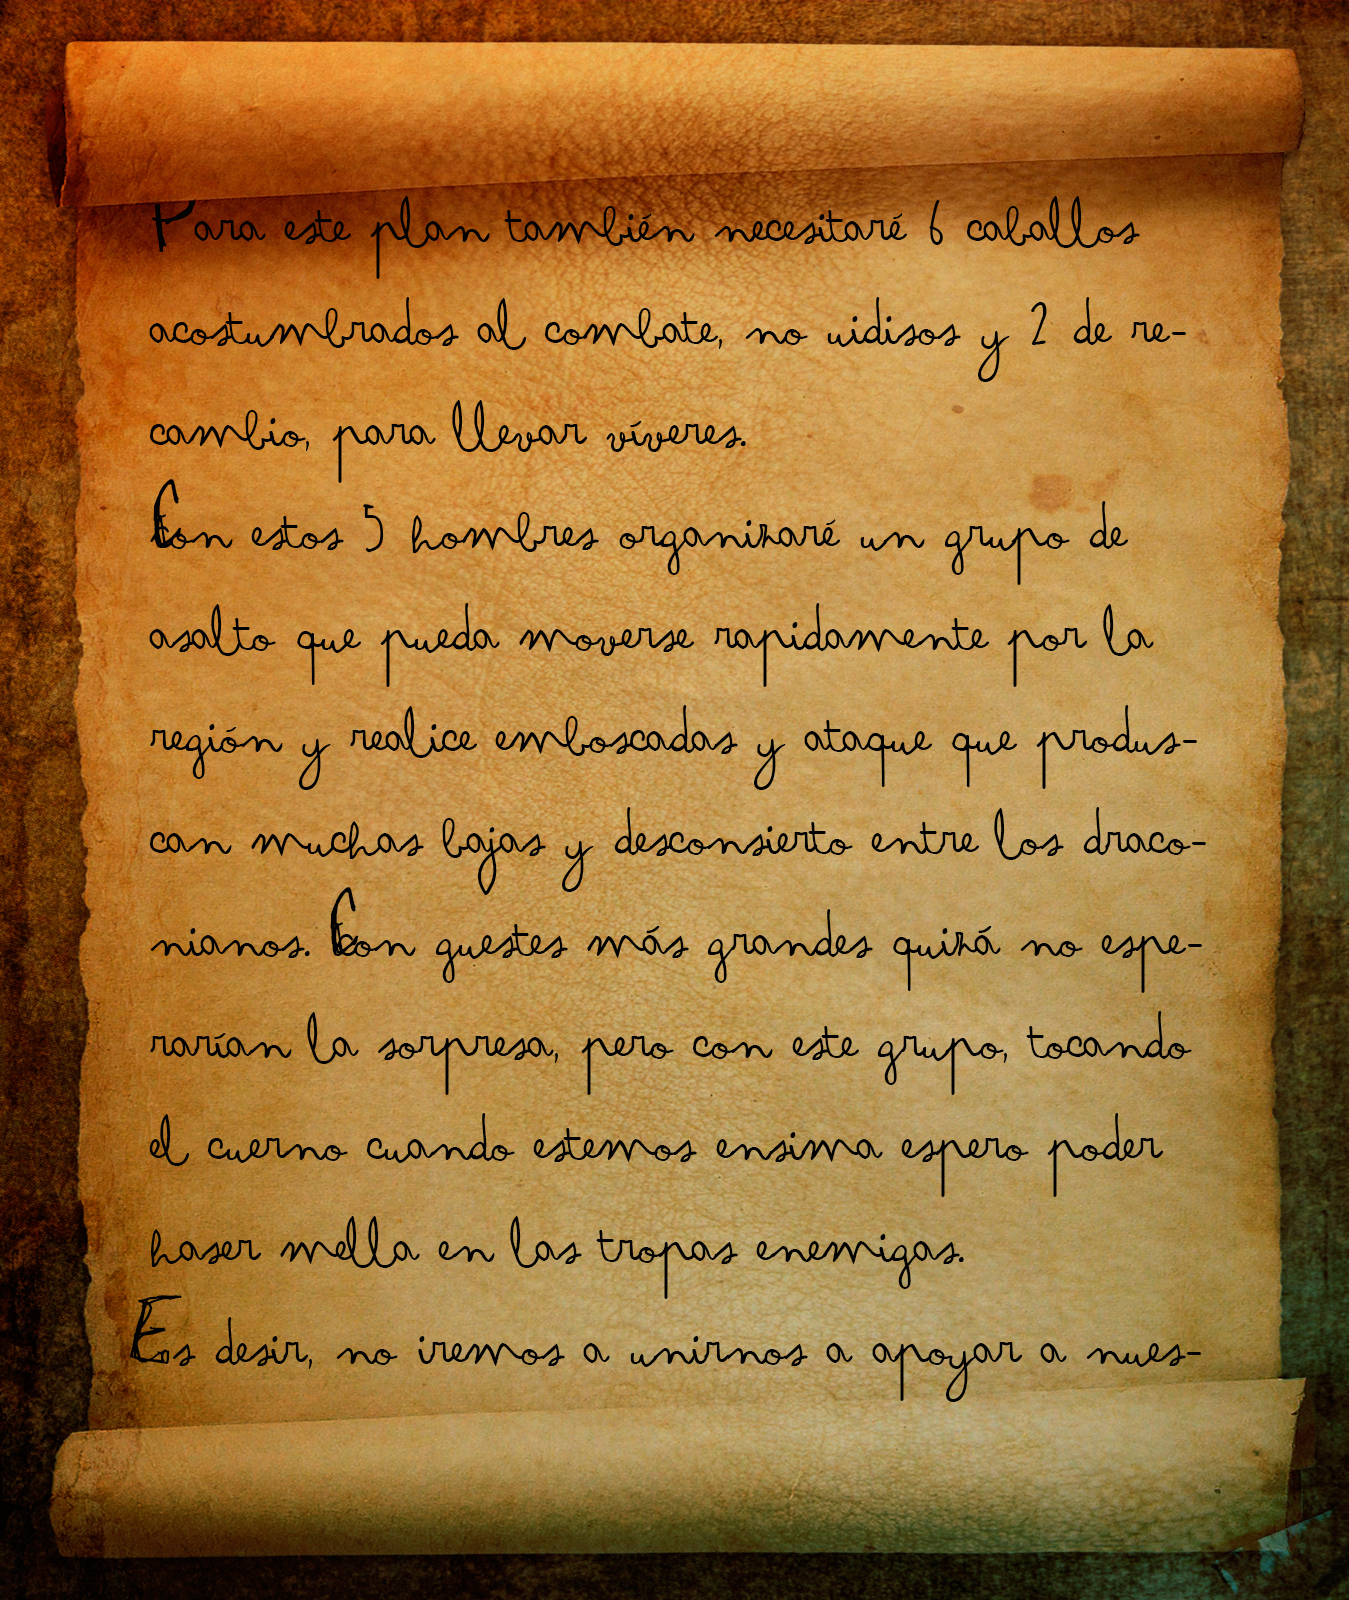 Para este plan también necesitaré 6 caballos
acostumbrados al combate, no uidisos y 2 de re-
cambio, para llevar víveres.
Con estos 5 hombres organizaré un grupo de
asalto que pueda moverse rapidamente por la
región y realice emboscadas y ataque que produs-
can muchas bajas y desconsierto entre los draco-
nianos. Con guestes más grandes quizá no espe-
rarían la sorpresa, pero con este grupo, tocando
el cuerno cuando estemos ensima espero poder
haser mella en las tropas enemigas.
Es desir, no iremos a unirnos a apoyar a nues-